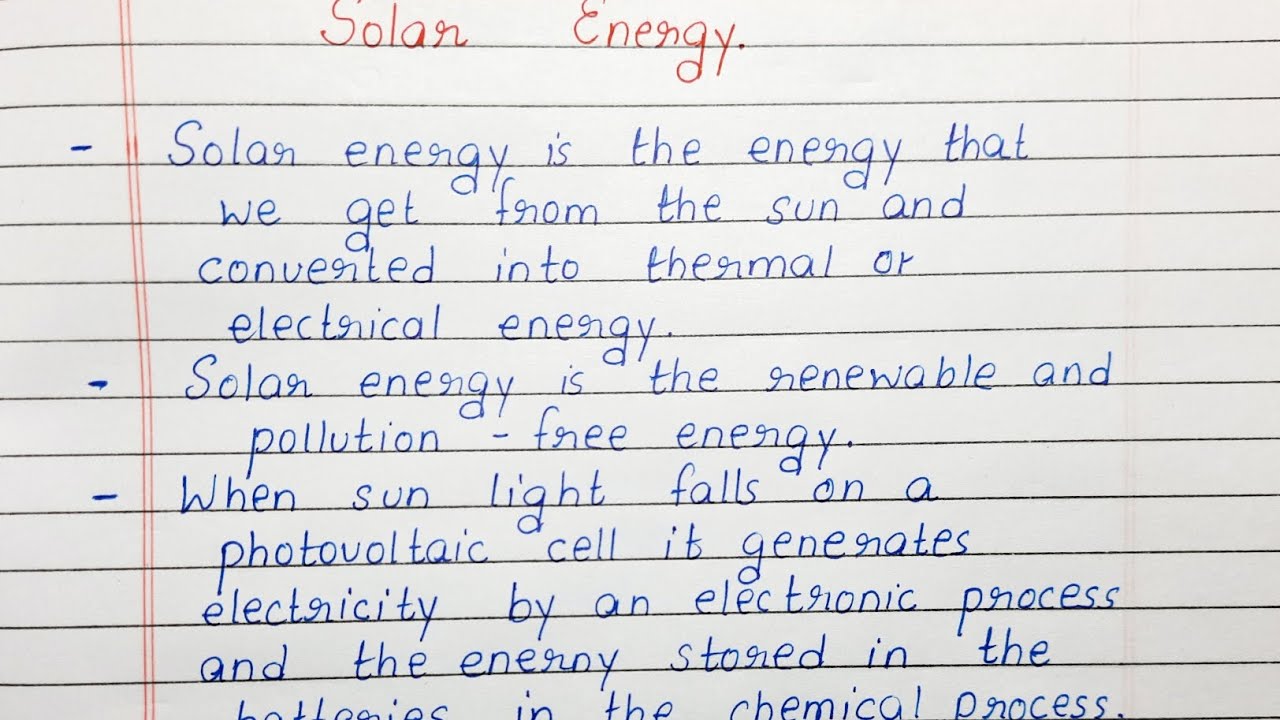 Solar Energy.
- Solar energy is the energy that
we get from the sun and
converted into thermal or
electrical energy.
- Solar energy is the renewable and
pollution - free energy.
- When sun light falls on a
photovoltaic cell it generates
electricity by an electronic process
and the enerny stored in the
batteries in the chemical process.